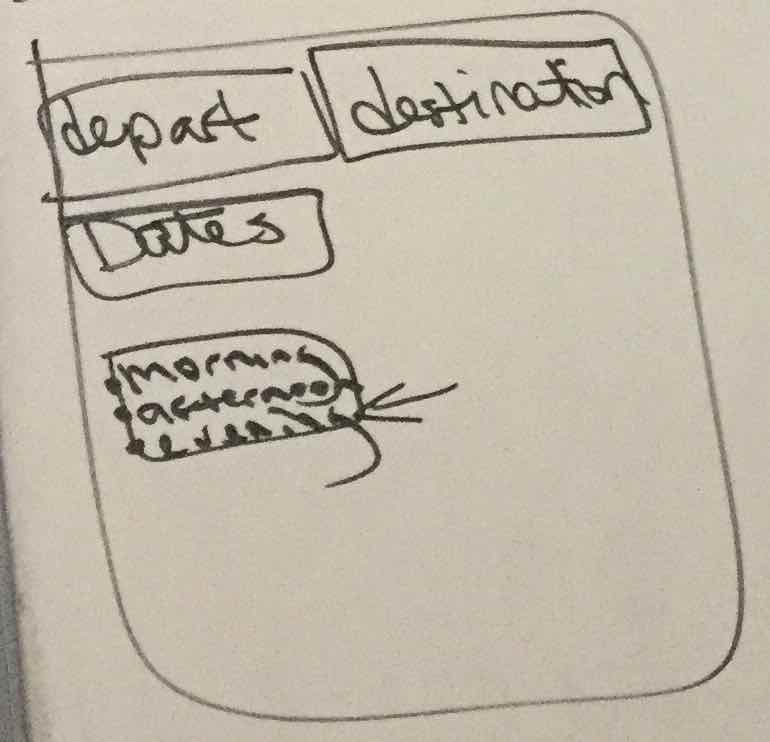 depart destination
Dates
morning
afternoon
evening